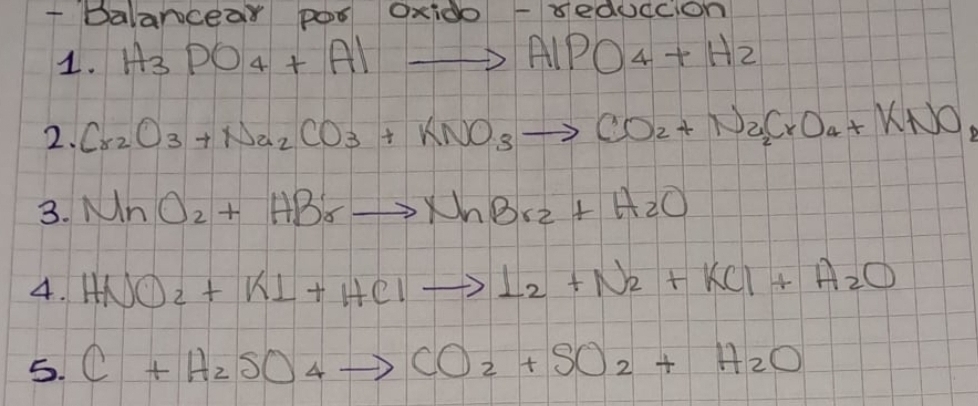 - Balancear por oxido - reduccion
1. H3 PO4 + Al ⟶ AlPO4 + H2
2. Cr2O3 + Na2CO3 + KNO3 ⟶ CO2 + Na2CrO4 + KNO2
3. MnO2 + HBr ⟶ MnBr2 + H2O
4. HNO2 + KI + HCl ⟶ I2 + N2 + KCl + H2O
5. C + H2SO4 ⟶ CO2 + SO2 + H2O